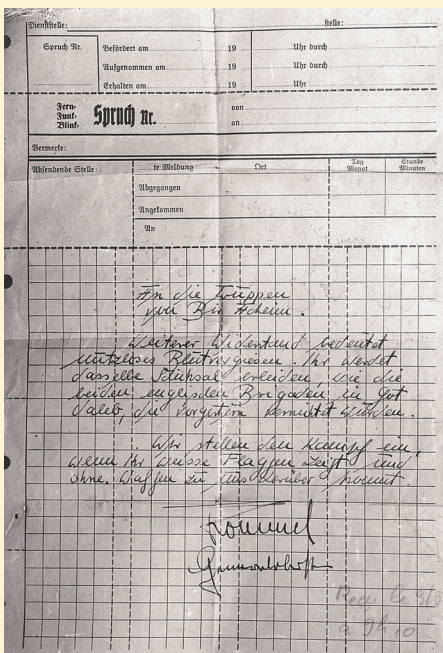 Dienststelle: stelle:
Spruch Nr. Befördert am 19 Uhr durch
Aufgenommen am 19 Uhr durch
Erhalten am 19 Uhr
Fern-
Funk-
Blink-
Spruch nr.
von
an
Vermerke:
Absendende Stelle: te Meldung Ort Tag Monat Stunde Minuten
Abgegangen
Angekommen
An
An die Truppen
von Bir Acheim.
Weiterer Widerstand bedeutet
nutzloses Blutvergiessen. Ihr werdet
dasselbe Schicksal erleiden, wie die
beiden englischen Brigaden in Got
Saleb, die vorgestern vernichtet wurden.
Wir stellen den Kampf ein,
wenn Ihr weisse Flaggen zeigt und
ohne Waffen zu uns herüber kommt.
Rommel
Generaloberst
à 9h,0